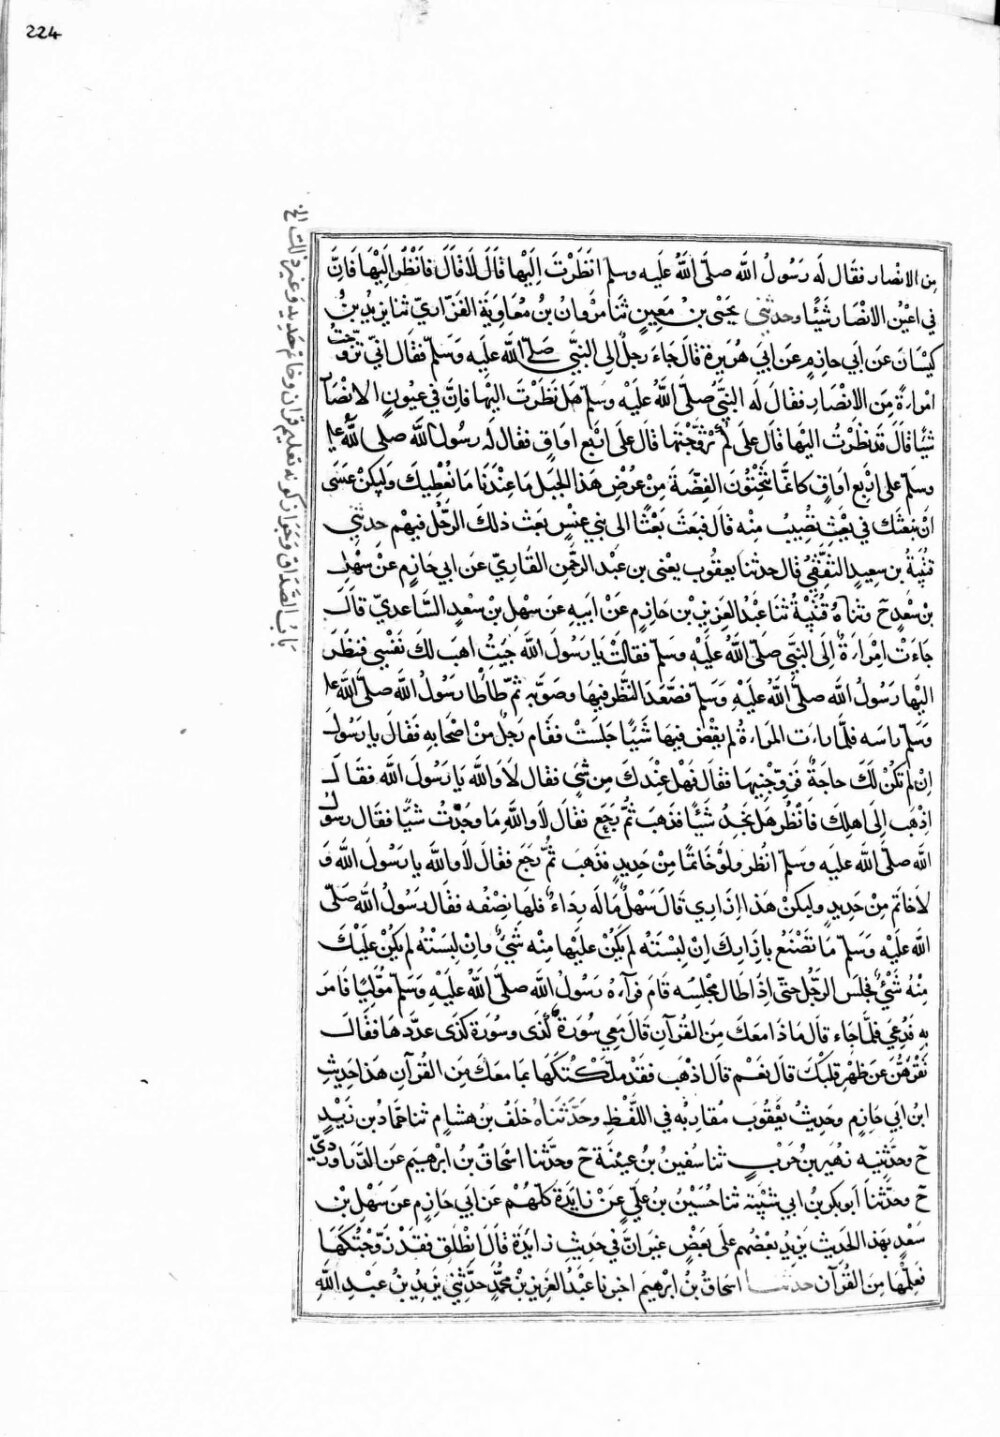 224
باب الصداق وجواز كونه تعليم قران وخاتم حديد وغير ذلك الخ
من الانصار فقال له رسول الله صلى الله عليه وسلم انظرت اليها قال لا قال فانظر اليها فان
في اعين الانصار شيئا وحدثني يحيى بن معين ثنا مروان بن معاوية الفزاري ثنا يزيد بن
كيسان عن ابي حازم عن ابي هريرة قال جاء رجل الى النبي صلى الله عليه وسلم فقال اني تزوجت
امراءة من الانصار فقال له النبي صلى الله عليه وسلم هل نظرت اليها فان في عيون الانصار
شيئا قال قد نظرت اليها قال على كم تزوجتها قال على اربع اواق فقال له رسول الله صلى الله عليه
وسلم على اربع اواق كانما تنحتون الفضة من عرض هذا الجبل ما عندنا ما نعطيك ولكن عسى
ان نبعثك في بعث تصيب منه قال فبعث بعثا الى بني عبس بعث ذلك الرجل فيهم حدثني
قتيبة بن سعيد الثقفي قال حدثنا يعقوب يعنى بن عبد الرحمن القاري عن ابي حازم عن سهل
بن سعد ح وثناه قتيبة ثنا عبد العزيز بن حازم عن ابيه عن سهل بن سعد الساعدي قال
جاءت امراءة الى النبي صلى الله عليه وسلم فقالت يا رسول الله جيت اهب لك نفسي فنظر
اليها رسول الله صلى الله عليه وسلم فصعد النظر فيها وصوبه ثم طاطا رسول الله صلى الله عليه
وسلم راسه فلما راءت المراءة لم يقض فيها شيئا جلست فقام رجل من اصحابه فقال يا رسول
ان لم تكن لك حاجة فزوجنيها فقال فهل عندك من شي فقال لا والله يا رسول الله فقال
اذهب الى اهلك فانظر هل تجد شيئا فذهب ثم رجع فقال لا والله ما وجدت شيئا فقال رسول
الله صلى الله عليه وسلم انظر ولو خاتما من حديد فذهب ثم رجع فقال لا والله يا رسول الله و
لا خاتم من حديد ولكن هذا ازاري قال سهل ما له رداء فلها نصفه فقال رسول الله صلى
الله عليه وسلم ما تصنع بازارك ان لبسته لم يكن عليها منه شي وان لبسته لم يكن عليك
منه شي فجلس الرجل حتى اذا طال مجلسه قام فرآه رسول الله صلى الله عليه وسلم موليا فامر
به فدعي فلما جاء قال ماذا معك من القرآن قال معي سورة كذى وسورة كذى عددها فقال
تقرؤهن عن ظهر قلبك قال نعم قال اذهب فقد ملكتكها بما معك من القرآن هذا حديث
ابن ابي حازم وحديث يعقوب مقاربه في اللفظ وحدثناه خلف بن هشام ثنا حماد بن زيد
ح وحدثنيه زهير بن حرب ثنا سفين بن عيينة ح وحدثنا اسحاق بن ابرهيم عن الدراوردي
ح وحدثنا ابو بكر بن ابي شيبة ثنا حسين بن علي عن زايدة كلهم عن ابي حازم عن سهل بن
سعد بهذا الحديث يزيد بعضهم على بعض غير ان في حديث زايدة قال انطلق فقد زوجتكها
فعلمها من القرآن حدثنا اسحاق بن ابرهيم اخبرنا عبد العزيز بن محمد حدثني يزيد بن عبد الله